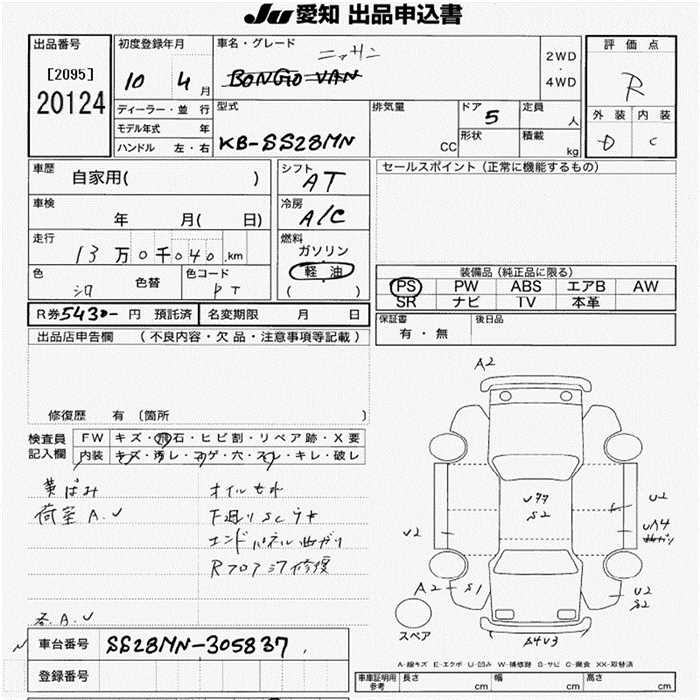 JU愛知 出品申込書
出品番号
[2095]
20124
初度登録年月
10 4 月
ディーラー・並 行
モデル年式 年
ハンドル 左・右
車名・グレード
ニッサン
BONGO VAN
2WD
・
4WD
型式
KB-SS28MN
排気量
CC
ドア 5
形状
定員
人
積載
kg
評 価 点
R
外 装 内 装
D C
車歴
自家用( )
車検
年 月( 日)
走行
13万0千040 km
色
シロ
色替
色コード
PT
シフト
AT
冷房
A/C
燃料
ガソリン
軽 油
( )
セールスポイント(正常に機能するもの)
装備品(純正品に限る)
PS PW ABS エアB AW
SR ナビ TV 本革
R券5430- 円 預託済
名変期限 月 日
保証書
有・無
後日品
出品店申告欄 (不良内容・欠品・注意事項等記載)
修復歴 有 〔箇所 〕
検査員
記入欄
FW キズ・飛石・ヒビ割・リペア跡・X要
内装 キズ・汚レ・コゲ・穴・スレ・キレ・破レ
黄ばみ
荷室 A.U
オイルもれ
下廻りSCサキ
エンドパネル曲ガリ
Rフロア シワ修復
A.U
車台番号 SS28MN-305837
登録番号
A2
U2
U2
S2
U2
UA4
曲ガリ
A2 S1
U2
S2
A4U3
スペア
A-線キズ E-エクボ U-凹み W-補修跡 S-サビ C-腐食 XX-取替済
車庫証明用
参考
長さ cm
幅 cm
高さ cm